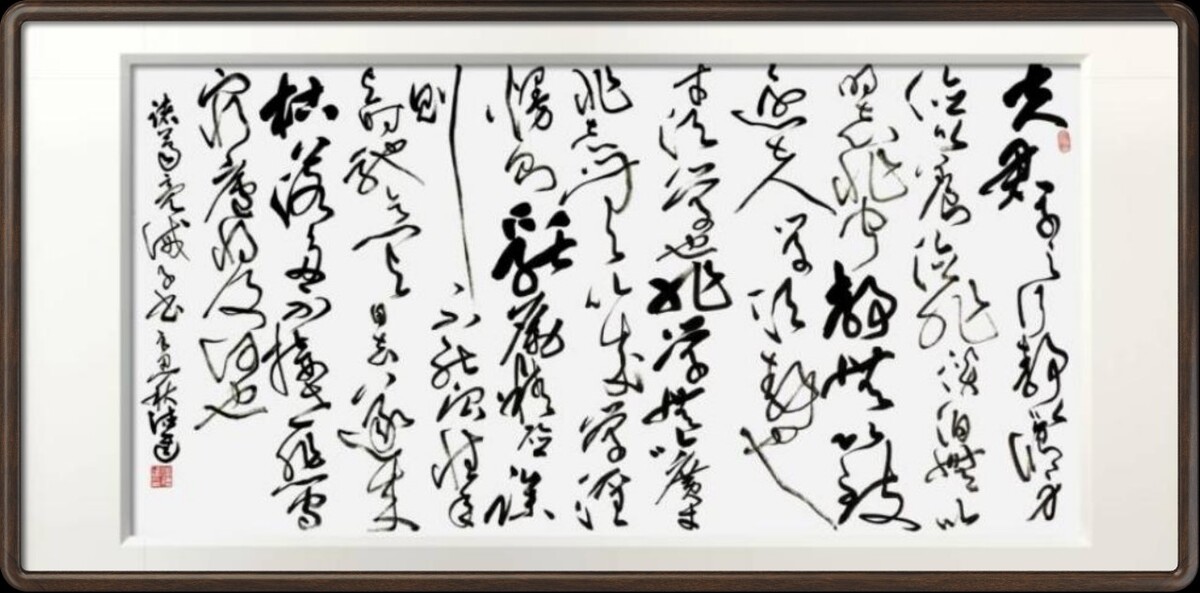 夫君子之行静以修身
俭以養德非淡泊無以
明志非寧静無以致
遠夫学須静也
才須学也非学無以廣才
非志無以成学淫
慢则不能勵精险躁
则不能治性年
与时馳意与日去遂成
枯落多不接世悲守
窮廬将復何及
诸葛亮诫子书 辛丑秋